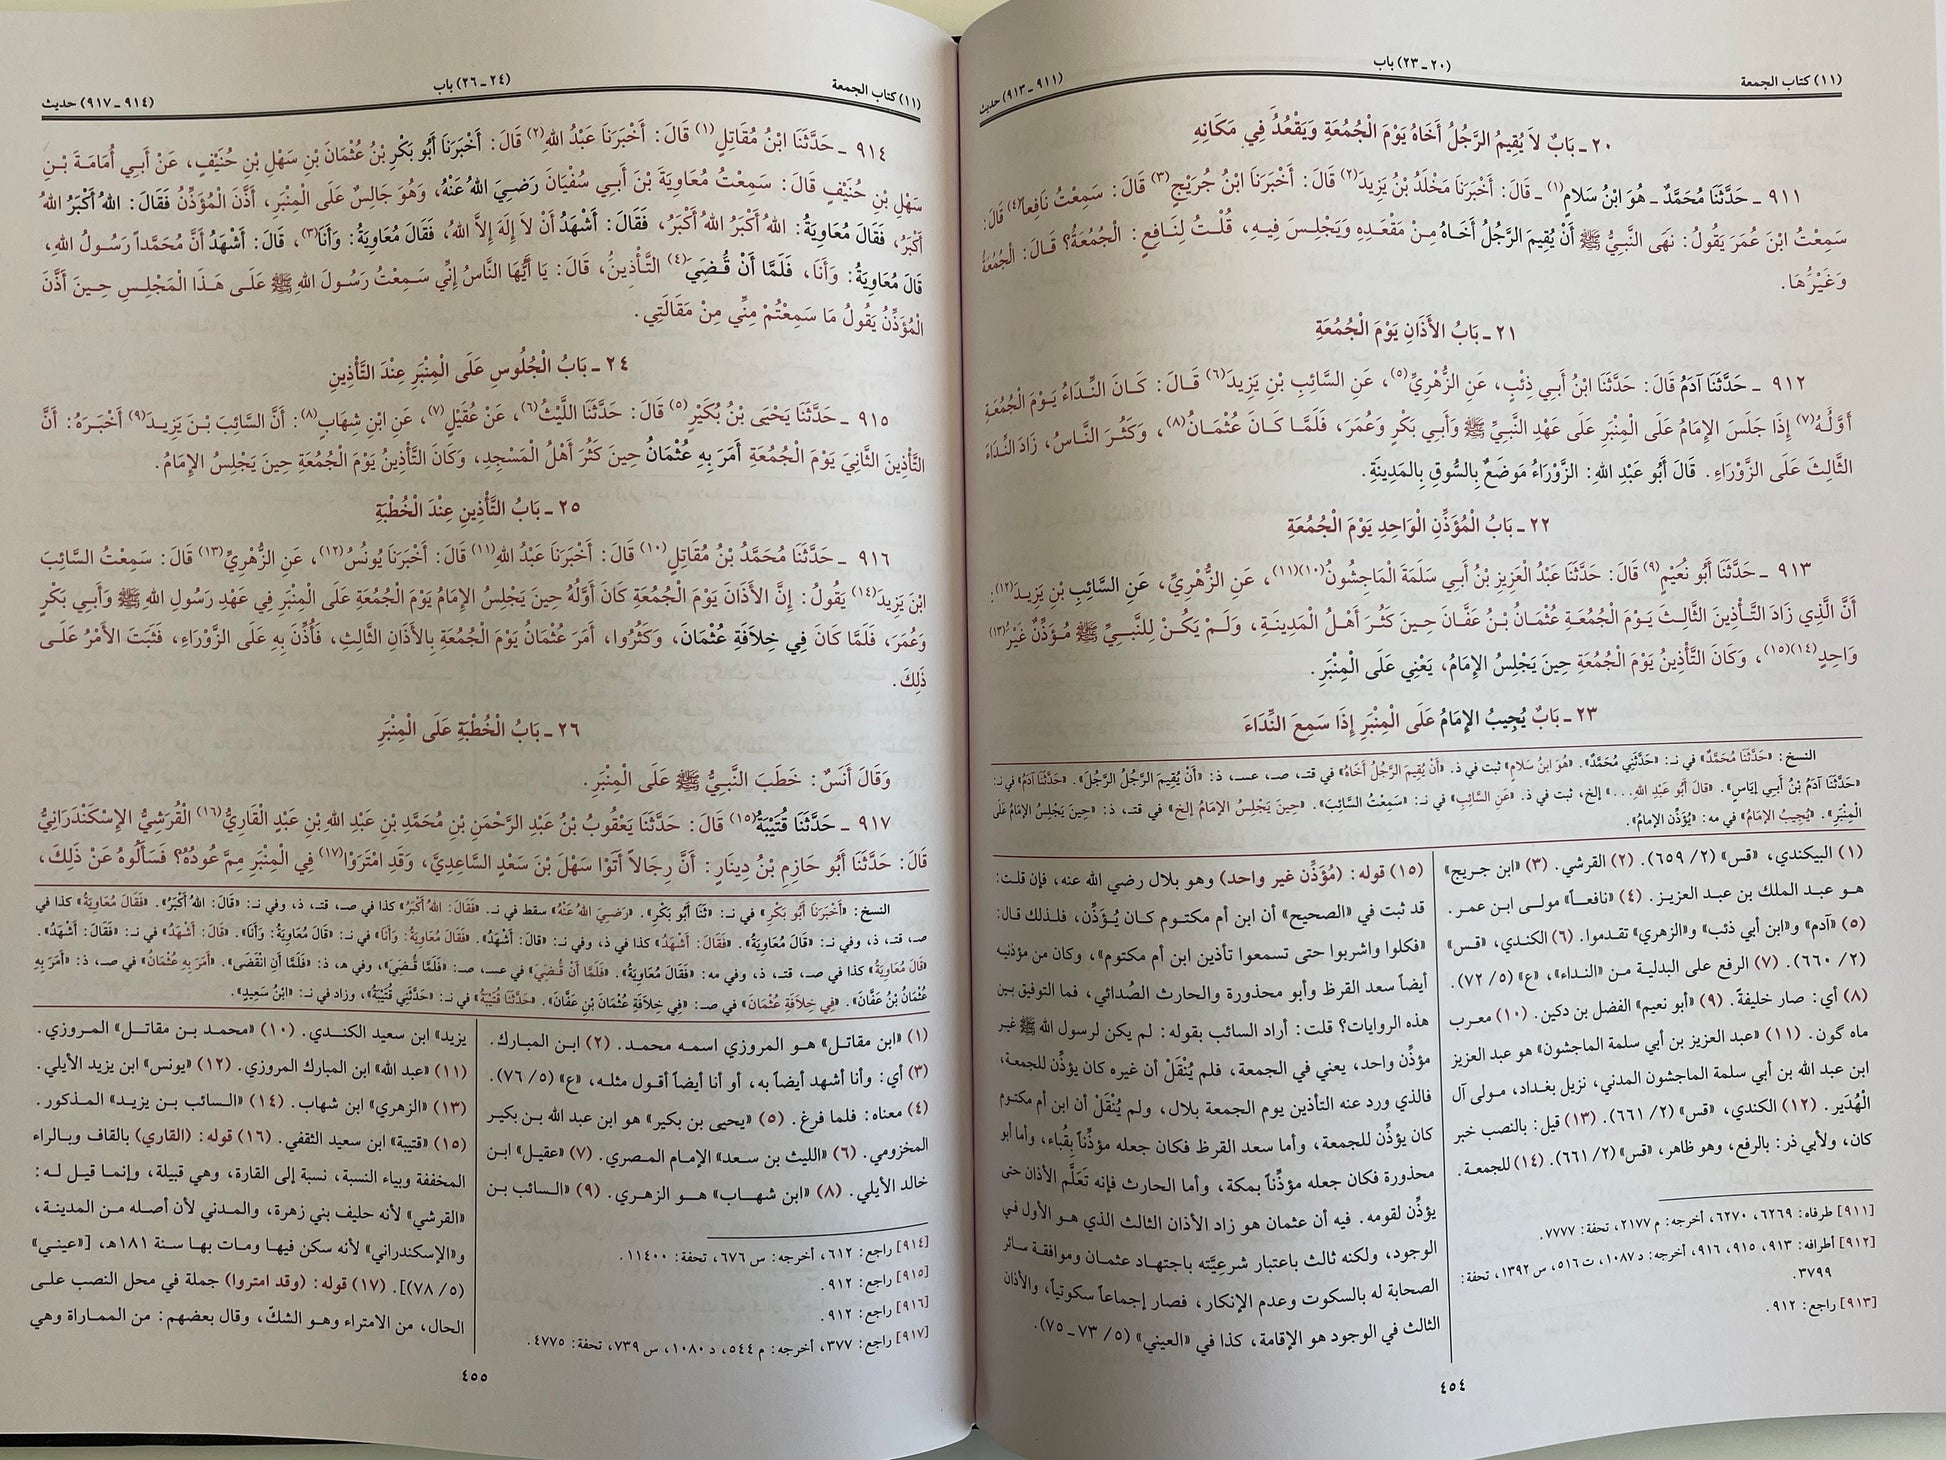 (١١) كتاب الجمعة (٢٠ ـ ٢٣) باب (٩١١ ـ ٩١٣) حديث
٢٠ ـ بَابٌ لاَ يُقِيمُ الرَّجُلُ أَخَاهُ يَوْمَ الْجُمُعَةِ وَيَقْعُدُ فِي مَكَانِهِ
٩١١ ـ حَدَّثَنَا مُحَمَّدٌ ـ هُوَ ابْنُ سَلامٍ(١) ـ قَالَ: أَخْبَرَنَا مَخْلَدُ بْنُ يَزِيدَ(٢) قَالَ: أَخْبَرَنَا ابْنُ جُرَيْجٍ(٣) قَالَ: سَمِعْتُ نَافِعاً(٤) قَالَ:
سَمِعْتُ ابْنَ عُمَرَ يَقُولُ: نَهَى النَّبِيُّ ﷺ أَنْ يُقِيمَ الرَّجُلُ أَخَاهُ مِنْ مَقْعَدِهِ وَيَجْلِسَ فِيهِ، قُلْتُ لِنَافِعٍ: الْجُمُعَةُ؟ قَالَ: الْجُمُعَةُ
وَغَيْرُهَا.
٢١ ـ بَابُ الأَذَانِ يَوْمَ الْجُمُعَةِ
٩١٢ ـ حَدَّثَنَا آدَمُ قَالَ: حَدَّثَنَا ابْنُ أَبِي ذِئْبٍ، عَنِ الزُّهْرِيِّ(٥)، عَنِ السَّائِبِ بْنِ يَزِيدَ(٦) قَالَ: كَانَ النِّدَاءُ يَوْمَ الْجُمُعَةِ
أَوَّلُهُ(٧) إِذَا جَلَسَ الإِمَامُ عَلَى الْمِنْبَرِ عَلَى عَهْدِ النَّبِيِّ ﷺ وَأَبِي بَكْرٍ وَعُمَرَ، فَلَمَّا كَانَ عُثْمَانُ(٨)، وَكَثُرَ النَّاسُ، زَادَ النِّدَاءَ
الثَّالِثَ عَلَى الزَّوْرَاءِ. قَالَ أَبُو عَبْدِ اللهِ: الزَّوْرَاءُ مَوضَعٌ بِالسُّوقِ بِالمَدِينَةِ.
٢٢ ـ بَابُ الْمُؤَذِّنِ الْوَاحِدِ يَوْمَ الْجُمُعَةِ
٩١٣ ـ حَدَّثَنَا أَبُو نُعَيْمٍ(٩) قَالَ: حَدَّثَنَا عَبْدُ الْعَزِيزِ بْنُ أَبِي سَلَمَةَ الْمَاجِشُونُ(١٠)(١١)، عَنِ الزُّهْرِيِّ، عَنِ السَّائِبِ بْنِ يَزِيدَ(١٢):
أَنَّ الَّذِي زَادَ التَّأْذِينَ الثَّالِثَ يَوْمَ الْجُمُعَةِ عُثْمَانُ بْنُ عَفَّانَ حِينَ كَثُرَ أَهْلُ الْمَدِينَةِ، وَلَمْ يَكُنْ لِلنَّبِيِّ ﷺ مُؤَذِّنٌ غَيْرُ(١٣)
وَاحِدٍ(١٤)(١٥)، وَكَانَ التَّأْذِينُ يَوْمَ الْجُمُعَةِ حِينَ يَجْلِسُ الإِمَامُ، يَعْنِي عَلَى الْمِنْبَرِ.
٢٣ ـ بَابٌ يُجِيبُ الإِمَامُ عَلَى الْمِنْبَرِ إِذَا سَمِعَ النِّدَاءَ
النسخ: «حَدَّثَنَا مُحَمَّدٌ» في نـ: «حَدَّثَنِي مُحَمَّدٌ». «هُوَ ابنُ سَلامٍ» ثبت في ذ. «أَنْ يُقِيمَ الرَّجُلُ أَخَاهُ» في قتـ، صـ، عسـ، ذ: «أَنْ يُقِيمَ الرَّجُلُ الرَّجُلَ». «حَدَّثَنَا آدَمُ» في نـ:
«حَدَّثَنَا آدَمُ بْنُ أَبِي إِيَاسٍ». «قَالَ أَبُو عَبْدِ اللهِ...» إلخ، ثبت في ذ. «عَنِ السَّائِبِ» في نـ: «سَمِعْتُ السَّائِبَ». «حِينَ يَجْلِسُ الإمَامُ إلخ» في قتـ، ذ: «حِينَ يَجْلِسُ الإمَامُ عَلَى
الْمِنْبَرِ». «يُجِيبُ الإِمَامُ» في مه: «يُؤَذِّن الإمَامُ».
(١) البيكندي، «قس» (٢/ ٦٥٩). (٢) القرشي. (٣) «ابن جريج»
هو عبد الملك بن عبد العزيز. (٤) «نافعاً» مولى ابن عمر.
(٥) «آدم» و«ابن أبي ذئب» و«الزهري» تقدموا. (٦) الكندي، «قس»
(٢/ ٦٦٠). (٧) الرفع على البدلية من «النداء»، «ع» (٥/ ٧٢).
(٨) أي: صار خليفةً. (٩) «أبو نعيم» الفضل بن دكين. (١٠) معرب
ماه گون. (١١) «عبد العزيز بن أبي سلمة الماجشون» هو عبد العزيز
ابن عبد الله بن أبي سلمة الماجشون المدني، نزيل بغداد، مولى آل
الْهُدَير. (١٢) الكندي، «قس» (٢/ ٦٦١). (١٣) قيل: بالنصب خبر
كان، ولأبي ذر: بالرفع، وهو ظاهر، «قس» (٢/ ٦٦١). (١٤) للجمعة.
[٩١١] طرفاه: ٦٢٦٩، ٦٢٧٠، أخرجه: م ٢١٧٧، تحفة: ٧٧٧٧.
[٩١٢] أطرافه: ٩١٣، ٩١٥، ٩١٦، أخرجه: د ١٠٨٧، ت ٥١٦، س ١٣٩٢، تحفة:
٣٧٩٩.
[٩١٣] راجع: ٩١٢.
(١٥) قوله: (مُؤَذِّن غير واحد) وهو بلال رضي الله عنه، فإن قلت:
قد ثبت في «الصحيح» أن ابن أم مكتوم كان يُؤَذِّن، فلذلك قال:
«فكلوا واشربوا حتى تسمعوا تأذين ابن أم مكتوم»، وكان من مؤذنيه
أيضاً سعد القرظ وأبو محذورة والحارث الصُدائي، فما التوفيق بين
هذه الروايات؟ قلت: أراد السائب بقوله: لم يكن لرسول الله ﷺ غير
مؤذِّن واحد، يعني في الجمعة، فلم يُنْقَلْ أن غيره كان يؤذِّن للجمعة،
فالذي ورد عنه التأذين يوم الجمعة بلال، ولم يُنْقَلْ أن ابن أم مكتوم
كان يؤذِّن للجمعة، وأما سعد القرظ فكان جعله مؤذِّناً بِقُباء، وأما أبو
محذورة فكان جعله مؤذِّناً بمكة، وأما الحارث فإنه تَعَلَّم الأذان حتى
يؤذِّن لقومه. فيه أن عثمان هو زاد الأذان الثالث الذي هو الأول في
الوجود، ولكنه ثالث باعتبار شرعِيَّته باجتهاد عثمان وموافقة سائر
الصحابة له بالسكوت وعدم الإنكار، فصار إجماعاً سكوتياً، والأذان
الثالث في الوجود هو الإقامة، كذا في «العيني» (٥/ ٧٣ ـ ٧٥).
٤٥٤
(١١) كتاب الجمعة (٢٤ ـ ٢٦) باب (٩١٤ ـ ٩١٧) حديث
٩١٤ ـ حَدَّثَنَا ابْنُ مُقَاتِلٍ(١) قَالَ: أَخْبَرَنَا عَبْدُ اللهِ(٢) قَالَ: أَخْبَرَنَا أَبُو بَكْرِ بْنُ عُثْمَانَ بْنِ سَهْلِ بْنِ حُنَيْفٍ، عَنْ أَبِي أُمَامَةَ بْنِ
سَهْلِ بْنِ حُنَيْفٍ قَالَ: سَمِعْتُ مُعَاوِيَةَ بْنَ أَبِي سُفْيَانَ رَضِيَ اللهُ عَنْهُ، وَهُوَ جَالِسٌ عَلَى الْمِنْبَرِ، أَذَّنَ الْمُؤَذِّنُ فَقَالَ: اللهُ أَكْبَرُ اللهُ
أَكْبَرُ، فَقَالَ مُعَاوِيَةُ: اللهُ أَكْبَرُ اللهُ أَكْبَرُ، فَقَالَ: أَشْهَدُ أَنْ لاَ إِلَهَ إِلاَّ اللهُ، فَقَالَ مُعَاوِيَةُ: وَأَنَا(٣)، قَالَ: أَشْهَدُ أَنَّ مُحَمَّداً رَسُولُ اللهِ،
قَالَ مُعَاوِيَةُ: وَأَنَا، فَلَمَّا أَنْ قُضِيَ(٤) التَّأْذِينُ، قَالَ: يَا أَيُّهَا النَّاسُ إِنِّي سَمِعْتُ رَسُولَ اللهِ ﷺ عَلَى هَذَا الْمَجْلِسِ حِينَ أَذَّنَ
الْمُؤَذِّنُ يَقُولُ مَا سَمِعْتُمْ مِنِّي مِنْ مَقَالَتِي.
٢٤ ـ بَابُ الْجُلُوسِ عَلَى الْمِنْبَرِ عِنْدَ التَّأْذِينِ
٩١٥ ـ حَدَّثَنَا يَحْيَى بْنُ بُكَيْرٍ(٥) قَالَ: حَدَّثَنَا اللَّيْثُ(٦)، عَنْ عُقَيْلٍ(٧)، عَنِ ابْنِ شِهَابٍ(٨): أَنَّ السَّائِبَ بْنَ يَزِيدَ(٩) أَخْبَرَهُ: أَنَّ
التَّأْذِينَ الثَّانِيَ يَوْمَ الْجُمُعَةِ أَمَرَ بِهِ عُثْمَانُ حِينَ كَثُرَ أَهْلُ الْمَسْجِدِ، وَكَانَ التَّأْذِينُ يَوْمَ الْجُمُعَةِ حِينَ يَجْلِسُ الإِمَامُ.
٢٥ ـ بَابُ التَّأْذِينِ عِنْدَ الْخُطْبَةِ
٩١٦ ـ حَدَّثَنَا مُحَمَّدُ بْنُ مُقَاتِلٍ(١٠) قَالَ: أَخْبَرَنَا عَبْدُ اللهِ(١١) قَالَ: أَخْبَرَنَا يُونُسُ(١٢)، عَنِ الزُّهْرِيِّ(١٣) قَالَ: سَمِعْتُ السَّائِبَ
ابْنَ يَزِيدَ(١٤) يَقُولُ: إِنَّ الأَذَانَ يَوْمَ الْجُمُعَةِ كَانَ أَوَّلُهُ حِينَ يَجْلِسُ الإِمَامُ يَوْمَ الْجُمُعَةِ عَلَى الْمِنْبَرِ فِي عَهْدِ رَسُولِ اللهِ ﷺ وَأَبِي بَكْرٍ
وَعُمَرَ، فَلَمَّا كَانَ فِي خِلاَفَةِ عُثْمَانَ، وَكَثُرُوا، أَمَرَ عُثْمَانُ يَوْمَ الْجُمُعَةِ بِالأَذَانِ الثَّالِثِ، فَأُذِّنَ بِهِ عَلَى الزَّوْرَاءِ، فَثَبَتَ الأَمْرُ عَلَى
ذَلِكَ.
٢٦ ـ بَابُ الْخُطْبَةِ عَلَى الْمِنْبَرِ
وَقَالَ أَنَسٌ: خَطَبَ النَّبِيُّ ﷺ عَلَى الْمِنْبَرِ.
٩١٧ ـ حَدَّثَنَا قُتَيْبَةُ(١٥) قَالَ: حَدَّثَنَا يَعْقُوبُ بْنُ عَبْدِ الرَّحْمَنِ بْنِ مُحَمَّدِ بْنِ عَبْدِ اللهِ بْنِ عَبْدٍ الْقَارِيُّ(١٦) الْقُرَشِيُّ الإِسْكَنْدَرَانِيُّ
قَالَ: حَدَّثَنَا أَبُو حَازِمِ بْنُ دِينَارٍ: أَنَّ رِجَالاً أَتَوْا سَهْلَ بْنَ سَعْدٍ السَّاعِدِيَّ، وَقَدِ امْتَرَوْا(١٧) فِي الْمِنْبَرِ مِمَّ عُودُهُ؟ فَسَأَلُوهُ عَنْ ذَلِكَ،
النسخ: «أَخْبَرَنَا أَبُو بَكْرِ» في نـ: «ثَنَا أَبُو بَكْرِ». «رَضِيَ اللهُ عَنْهُ» سقط في نـ. «فَقَالَ: اللهُ أَكْبَرُ» كذا في صـ، قتـ، ذ، وفي نـ: «قَالَ: اللهُ أَكْبَرُ». «فَقَالَ مُعَاوِيَةُ» كذا في
صـ، قتـ، ذ، وفي نـ: «قَالَ مُعَاوِيَةُ». «فَقَالَ: أَشْهَدُ» كذا في ذ، وفي نـ: «قَالَ: أَشْهَدُ». «فَقَالَ مُعَاوِيَةُ: وَأَنَا» في نـ: «قَالَ مُعَاوِيَةُ: وَأَنَا». «قَالَ: أَشْهَدُ» في نـ: «فَقَالَ: أَشْهَدُ».
«قَالَ مُعَاوِيَةُ» كذا في صـ، قتـ، ذ، وفي مه: «فَقَالَ مُعَاوِيَةُ». «فَلَمَّا أَنْ قُضِيَ» في عسـ، صـ: «فَلَمَّا قُضِيَ»، وفي هـ، ذ: «فَلَمَّا أَنِ انْقَضَى». «أَمَرَ بِهِ عُثْمَانُ» في صـ، ذ: «أَمَرَ بِهِ
عُثْمَانُ بْنُ عَفَّانَ». «فِي خِلاَفَةِ عُثْمَانَ» في صـ: «فِي خِلاَفَةِ عُثْمَانَ بْنِ عَفَّانَ». «حَدَّثَنَا قُتَيْبَةُ» في نـ: «حَدَّثَنِي قُتَيْبَةُ»، وزاد في نـ: «ابْنُ سَعِيدٍ».
(١) «ابن مقاتل» هو المروزي اسمه محمد. (٢) ابن المبارك.
(٣) أي: وأنا أشهد أيضاً به، أو أنا أيضاً أقول مثله، «ع» (٥/ ٧٦).
(٤) معناه: فلما فرغ. (٥) «يحيى بن بكير» هو ابن عبد الله بن بكير
المخزومي. (٦) «الليث بن سعد» الإمام المصري. (٧) «عقيل» ابن
خالد الأيلي. (٨) «ابن شهاب» هو الزهري. (٩) «السائب بن
[٩١٤] راجع: ٦١٢، أخرجه: س ٦٧٦، تحفة: ١١٤٠٠.
[٩١٥] راجع: ٩١٢.
[٩١٦] راجع: ٩١٢.
[٩١٧] راجع: ٣٧٧، أخرجه: م ٥٤٤، د ١٠٨٠، س ٧٣٩، تحفة: ٤٧٧٥.
يزيد» ابن سعيد الكندي. (١٠) «محمد بن مقاتل» المروزي.
(١١) «عبد الله» ابن المبارك المروزي. (١٢) «يونس» ابن يزيد الأيلي.
(١٣) «الزهري» ابن شهاب. (١٤) «السائب بن يزيد» المذكور.
(١٥) «قتيبة» ابن سعيد الثقفي. (١٦) قوله: (القاري) بالقاف وبالراء
المخففة وبياء النسبة، نسبة إلى القارة، وهي قبيلة، وإنما قيل له:
«القرشي» لأنه حليف بني زهرة، والمدني لأن أصله من المدينة،
و«الإسكندراني» لأنه سكن فيها ومات بها سنة ١٨١هـ، [«عيني»
(٥/ ٧٨)]. (١٧) قوله: (وقد امتروا) جملة في محل النصب على
الحال، من الامتراء وهو الشكّ، وقال بعضهم: من المماراة وهي
٤٥٥